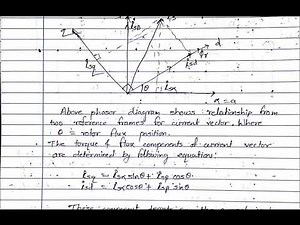 q
isβ
is
d
ψr
isq
isd
θ
isα
α=a
Above phasor diagram shows relationship from
two reference frames for current vector. Where
θ = rotor flux position.
The torque & flux components of current vector
are determined by following equation:
isq = -isα sinθ + isβ cosθ
isd = isα cosθ + isβ sinθ